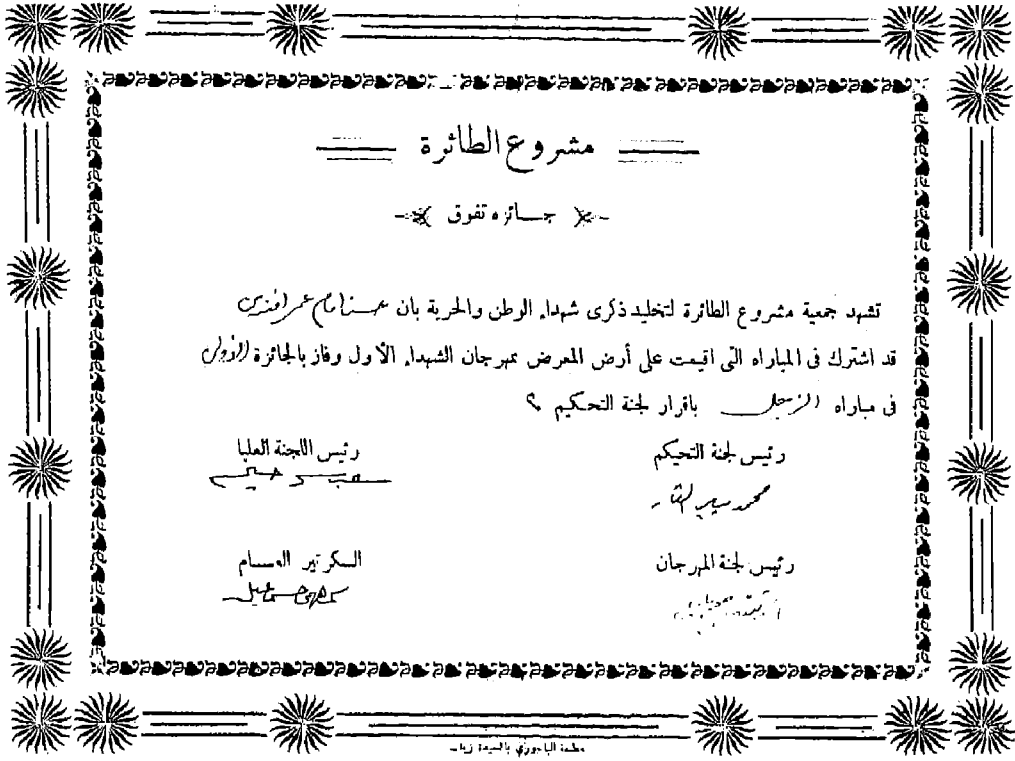 مشروع الطائرة
جائزه تفوق
تشهد جمعية مشروع الطائرة لتخليد ذكرى شهداء الوطن والحرية بان عمر افندى
قد اشترك فى المباراه التى اقيمت على أرض المعرض بمهرجان الشهداء الأول وفاز بالجائزة الأولى
فى مباراه الزجل باقرار لجنة التحكيم
رئيس لجنة التحيكم
رئيس اللجنة العليا
محمد
رئيس لجنة المهرجان
السكرتير العام
مطبعة الباجورى بالسيدة زينب